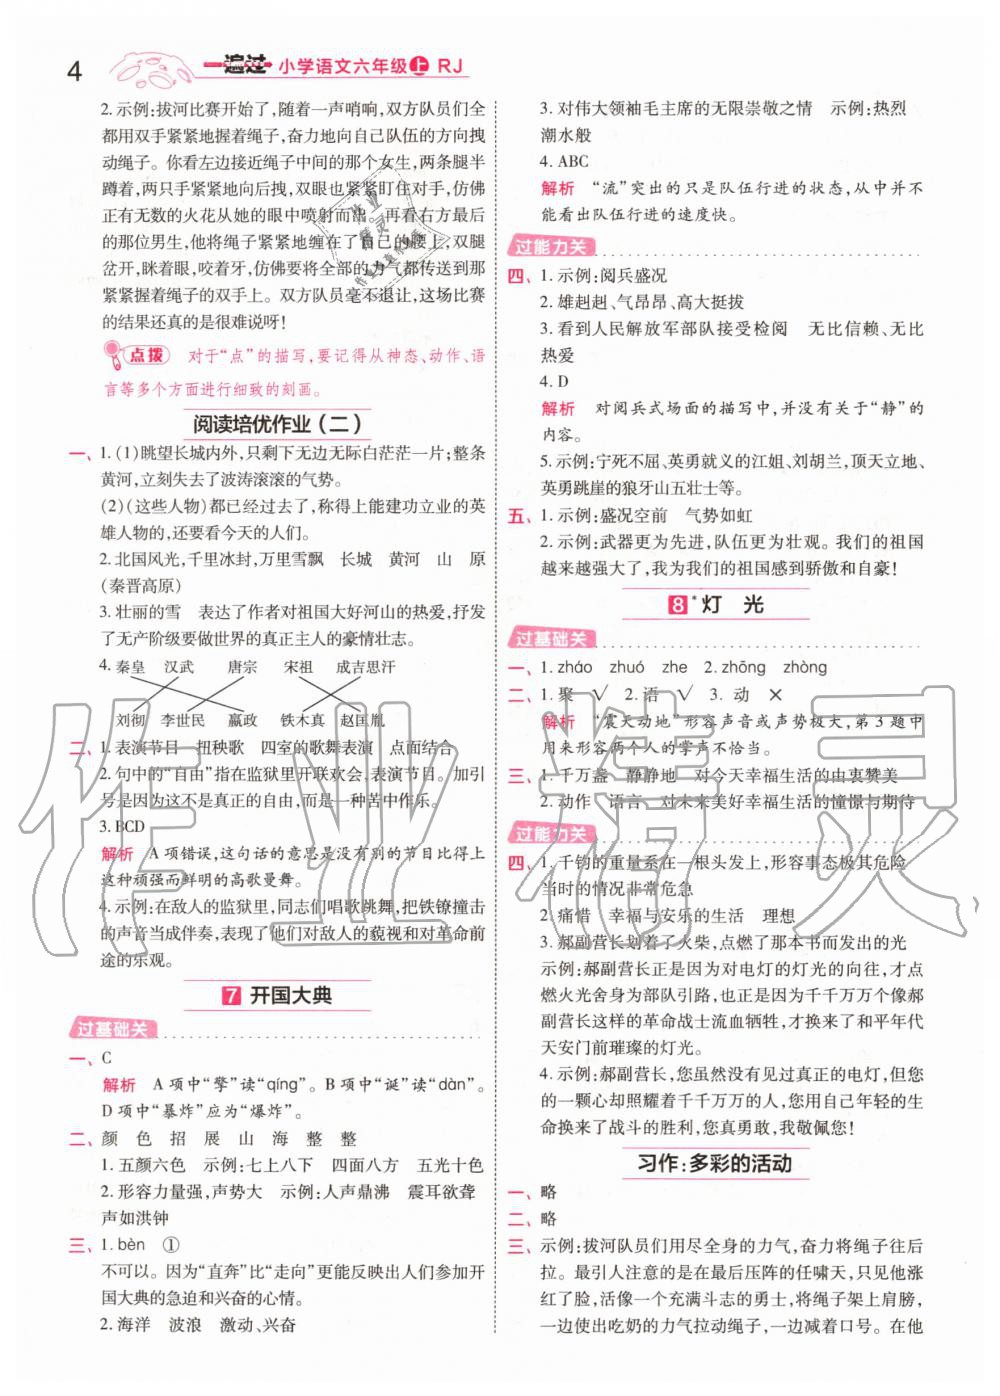 4
一遍过 小学语文六年级上 RJ
2. 示例:拔河比赛开始了,随着一声哨响,双方队员们全
都用双手紧紧地握着绳子,奋力地向自己队伍的方向拽
动绳子。你看左边接近绳子中间的那个女生,两条腿半
蹲着,两只手紧紧地向后拽,双眼也紧紧盯住对手,仿佛
正有愤怒的火花从她的眼中喷射而出。再看右方最后一
位的那位男生,他将绳子紧紧地缠在了自己的腰间,双腿
岔开,眯着眼,咬着牙,仿佛要将全部的力气都作用在那
紧紧握着绳子的双手上。双方队员毫不退让,这场比赛
的结果还真的是很难说呀!
点拨 对于“点”的描写,要记得从神态、动作、语
言等多个方面进行细致的刻画。
阅读培优作业(二)
一、1. (1)眺望长城内外,只剩下无边无际白茫茫一片;整条
黄河,立刻失去了波涛滚滚的气势。
(2)(这些人物)都过去了,称得上能建功立业的英
雄人物的,还要看今天的人们。
2. 北国风光,千里冰封,万里雪飘 长城 黄河 山 原
(秦晋高原)
3. 壮丽的雪 表达了作者对祖国大好河山的热爱,抒发
了无产阶级要做世界的真正主人的豪情壮志。
4. 秦皇 汉武 唐宗 宋祖 成吉思汗
刘彻 李世民 嬴政 铁木真 赵匡胤
二、1. 表演节目 扭秧歌 四室的歌舞表演 点面结合
2. 句中的“自由”指在监狱里开联欢会、表演节目。加引
号是因为这不是真正的自由,而是一种苦中作乐。
3. BCD
解析 A项错误,这句话的意思是没有别的节目比得上
这种顽强而鲜明的高歌曼舞。
4. 示例:在敌人的监狱里,同志们唱歌跳舞,把铁镣撞击
的声音当成伴奏,表现了他们对敌人的藐视和对革命前
途的乐观。
7 开国大典
过基础关
一、C
解析 A项中“擎”读“qíng”。B项中“诞”读“dàn”。
D项中“暴炸”应为“爆炸”。
二、颜 色 招 展 山 海 整 整
1. 五颜六色 示例:七上八下 四面八方 五光十色
2. 形容力量强,声势大 示例:人声鼎沸 震耳欲聋
声如洪钟
三、1. bèn ①
不可以。因为“直奔”比“走向”更能反映出人们参加开
国大典的急迫和兴奋的心情。
2. 海洋 波浪 激动、兴奋
3. 对伟大领袖毛主席的无限崇敬之情 示例:热烈
潮水般
4. ABC
解析 “流”突出的只是队伍行进的状态,从中并不
能看出队伍行进的速度快。
过能力关
四、1. 示例:阅兵盛况
2. 雄赳赳、气昂昂、高大挺拔
3. 看到人民解放军部队接受检阅 无比信赖、无比
热爱
4. D
解析 对阅兵式场面的描写中,并没有关于“静”的
内容。
5. 示例:宁死不屈、英勇就义的江姐、刘胡兰,顶天立地、
英勇跳崖的狼牙山五壮士等。
五、1. 示例:盛况空前 气势如虹
2. 示例:武器更为先进,队伍更为壮观。我们的祖国
越来越强大了,我为我们的祖国感到骄傲和自豪!
8* 灯 光
过基础关
一、1. zháo zhuó zhe 2. zhōng zhòng
二、1. 聚 √ 2. 语 √ 3. 动 ×
解析 “震天动地”形容声音或声势极大,第3题中
用来形容两个人的掌声不恰当。
三、1. 千万盏 静静地 对今天幸福生活的由衷赞美
2. 动作 语言 对未来美好幸福生活的憧憬与期待
过能力关
四、1. 千钧的重量系在一根头发上,形容事态极其危险
当时的情况非常危急
2. 痛惜 幸福与安乐的生活 理想
3. 郝副营长划着了火柴,点燃了那本书而发出的光
示例:郝副营长正是因为对电灯的灯光的向往,才点
燃火光舍身为部队引路,也正是因为千千万万个像郝
副营长这样的革命战士流血牺牲,才换来了和平年代
天安门前璀璨的灯光。
4. 示例:郝副营长,您虽然没有见过真正的电灯,但您
的一颗心却照耀着千千万万的人,您用自己年轻的生
命换来了战斗的胜利,您真勇敢,我敬佩您!
习作:多彩的活动
一、略
二、略
三、示例:拔河队员们用尽全身的力气,奋力将绳子往后
拉。最引人注意的是在最后压阵的任啸天,只见他涨
红了脸,活像一个充满斗志的勇士,将绳子架上肩膀,
一边使出吃奶的力气拉动绳子,一边喊着口号。在他
作业精灵